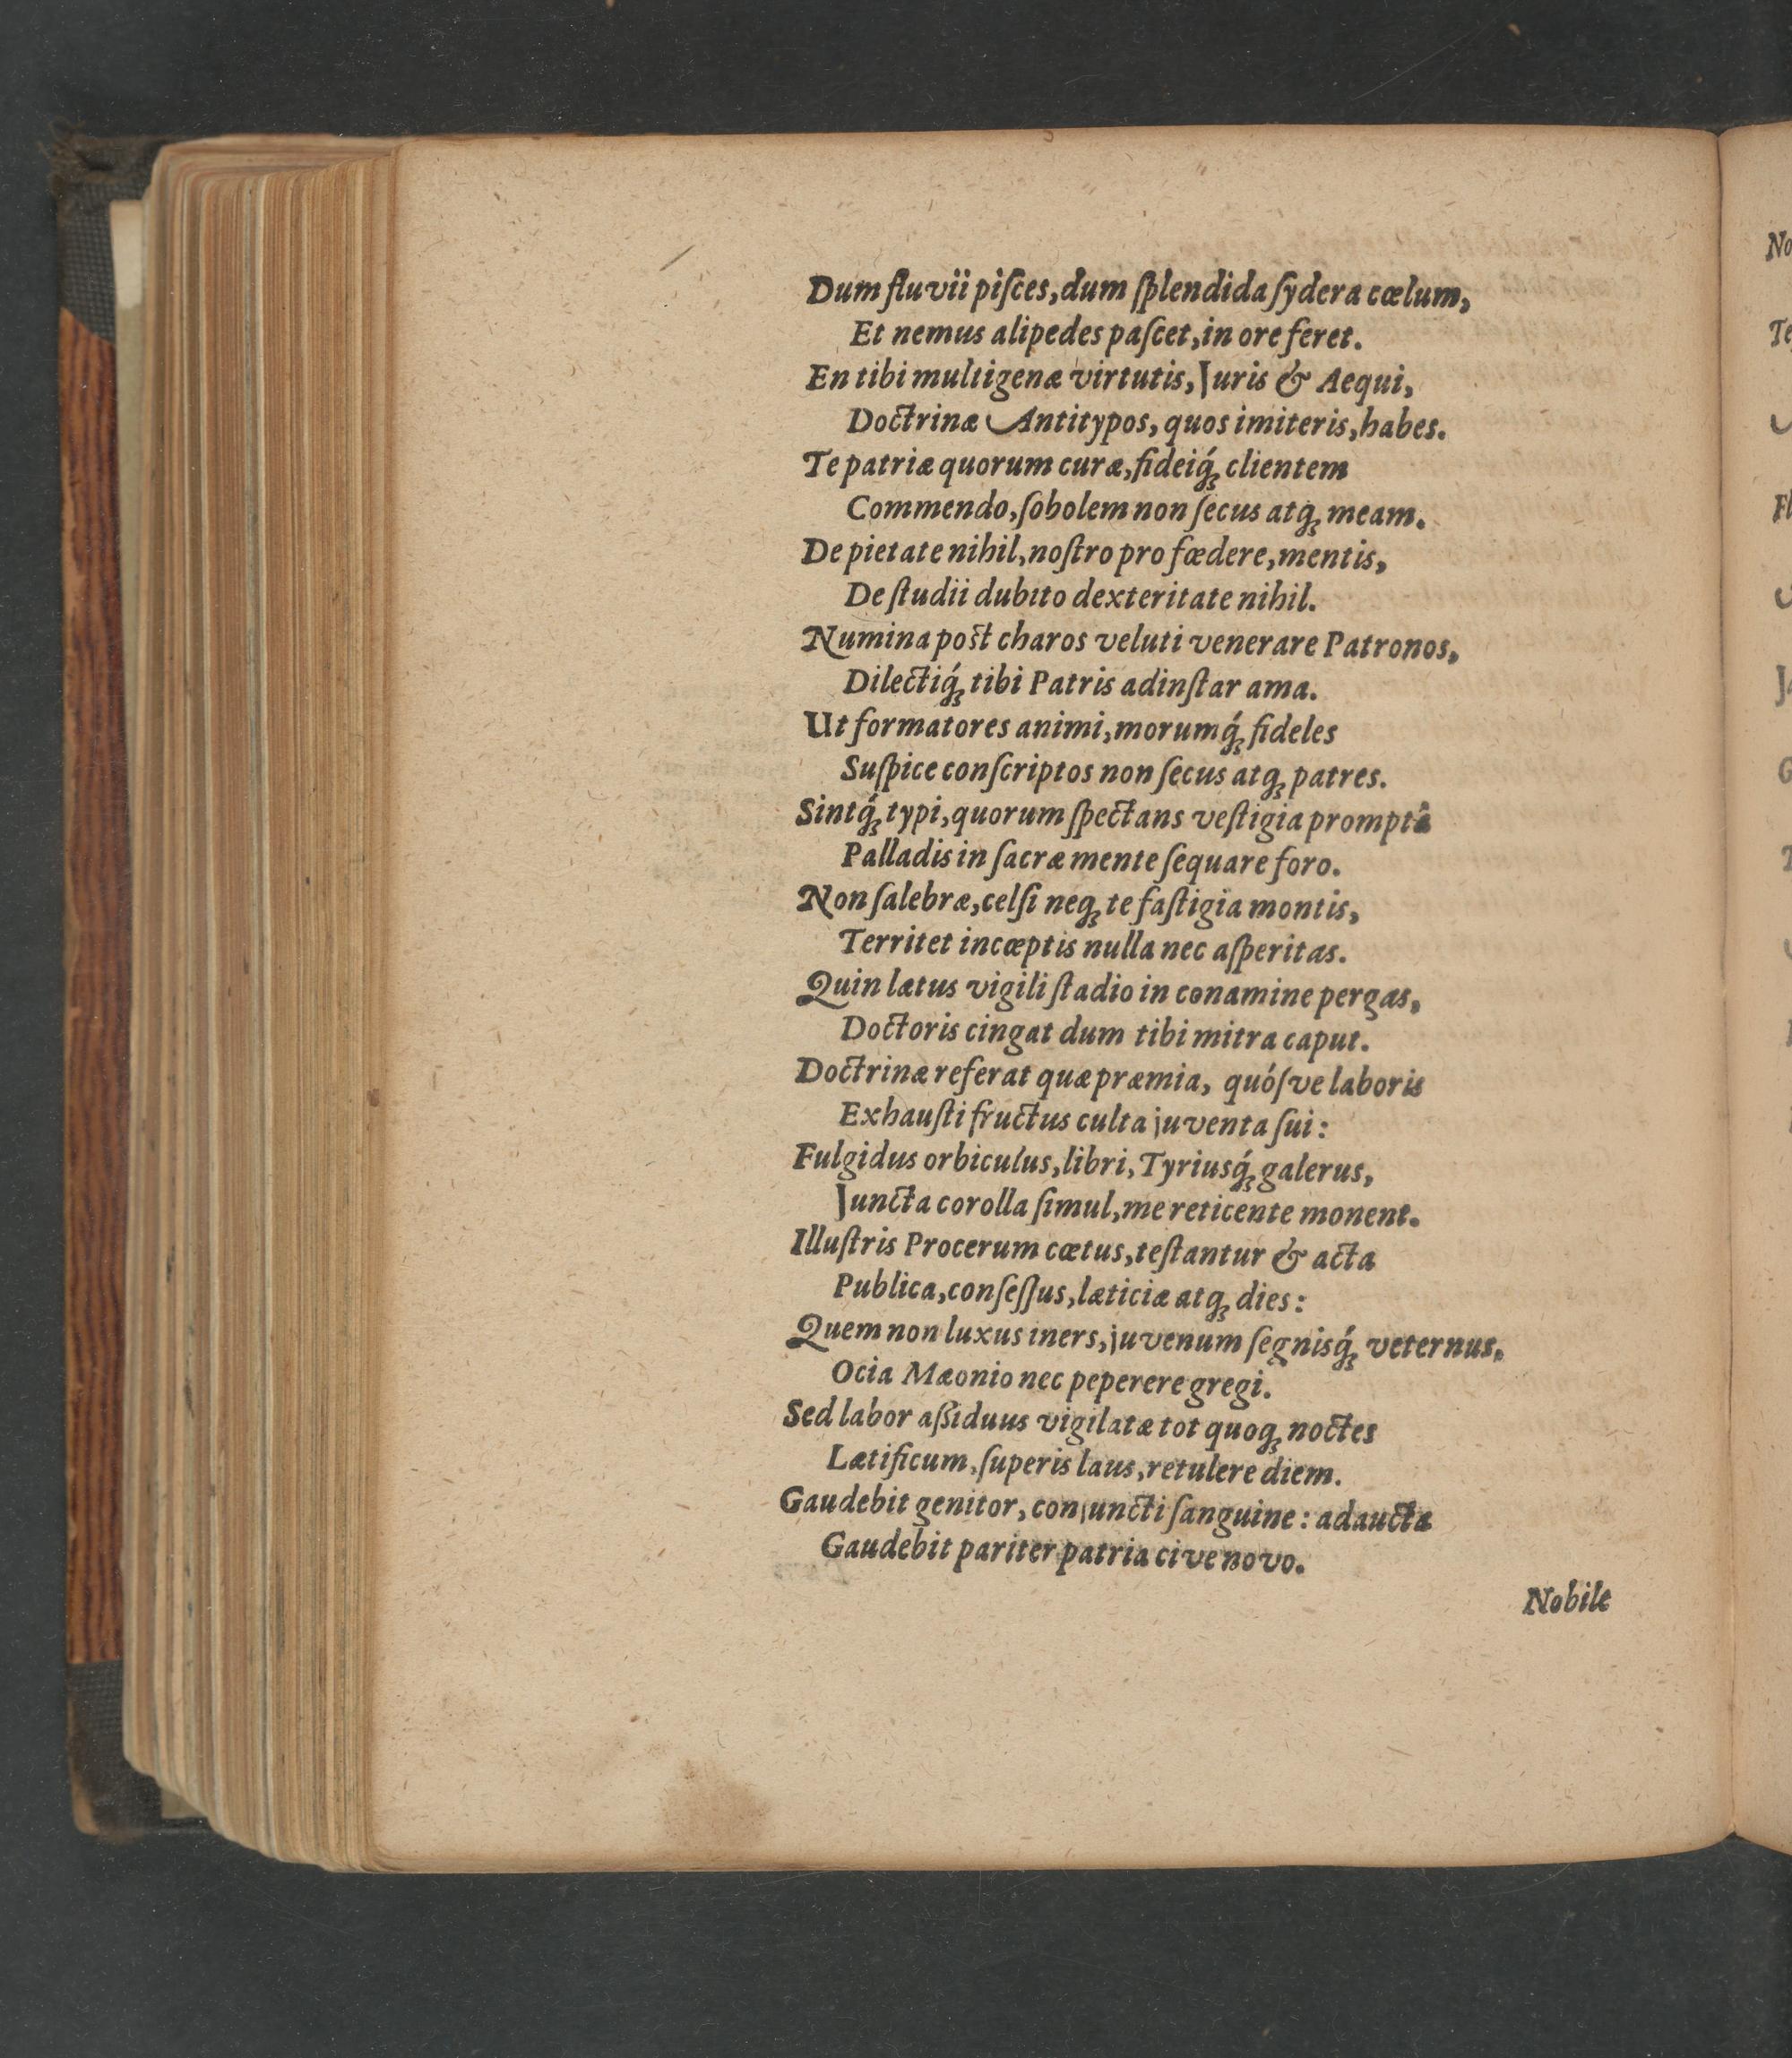 Dum fluvii piſces, dum ſplendida ſydera cœlum,
Et nemus alipedes paſcet, in ore feret.
En tibi multigenæ virtutis, Juris & Aequi,
Doctrinæ Antitypos, quos imiteris, habes.
Te patriæ quorum curæ, fideiq́ꝫ clientem
Commendo, ſobolem non ſecus atqꝫ meam.
De pietate nihil, noſtro pro fœdere, mentis,
De ſtudii dubito dexteritate nihil.
Numina poſt charos veluti venerare Patronos,
Dilectiq́ꝫ tibi Patris adinſtar ama.
Ut formatores animi, morumq́ꝫ fideles
Suſpice conſcriptos non ſecus atqꝫ patres.
Sintq́ꝫ typi, quorum ſpectans veſtigia promptâ
Palladis in ſacræ mente ſequare foro.
Non ſalebræ, celſi neqꝫ te faſtigia montis,
Territet incœptis nulla nec aſperitas.
Quin lætus vigili ſtadio in conamine pergas,
Doctoris cingat dum tibi mitra caput.
Doctrinæ referat quæ præmia, quóſve laboris
Exhauſti fructus culta juventa ſui:
Fulgidus orbiculus, libri, Tyriusq́ꝫ galerus,
Juncta corolla ſimul, me reticente monent.
Illuſtris Procerum cœtus, teſtantur & acta
Publica, conſeſſus, læticiæ atqꝫ dies:
Quem non luxus iners, juvenum ſegnisq́ꝫ veternus,
Ocia Mæonio nec peperere gregi.
Sed labor aßiduus vigilatæ tot quoqꝫ noctes
Lætificum, ſuperis laus, retulere diem.
Gaudebit genitor, conjuncti ſanguine: adaucta
Gaudebit pariter patria cive novo.
Nobile